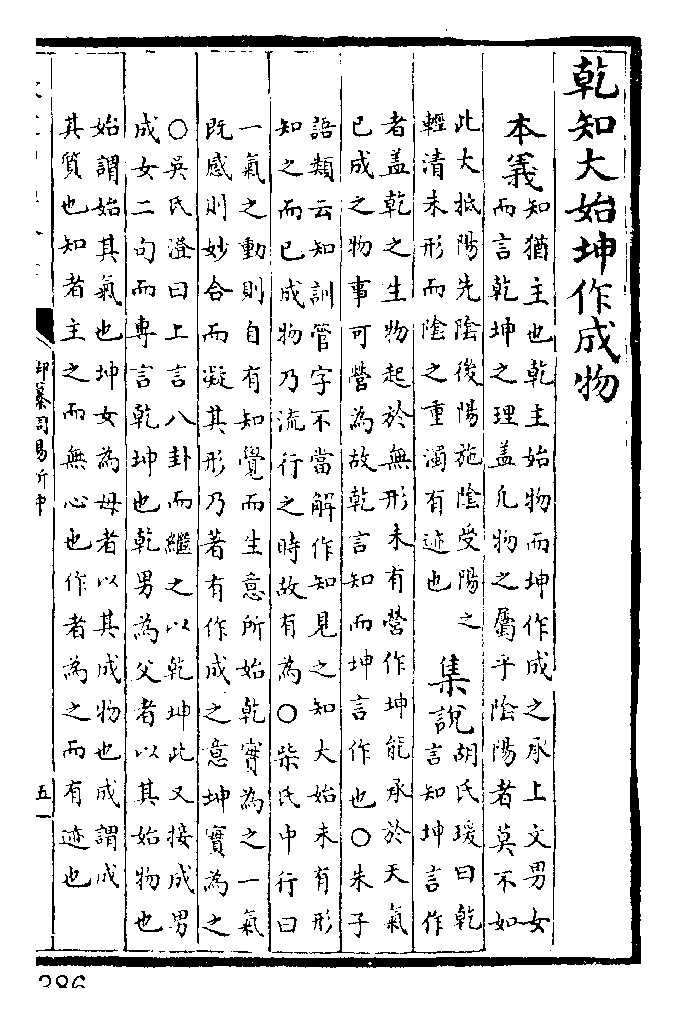 乾知大始坤作成物
本義知猶主也乾主始物而坤作成之承上文男女
而言乾坤之理蓋凡物之屬乎陰陽者莫不如
此大抵陽先陰後陽施陰受陽之
輕清未形而陰之重濁有迹也
集說胡氏瑗曰乾
言知坤言作
者蓋乾之生物起於無形未有營作坤能承於天氣
已成之物事可營為故乾言知而坤言作也○朱子
語類云知訓管字不當解作知見之知大始未有形
知之而已成物乃流行之時故有為○柴氏中行曰
一氣之動則自有知覺而生意所始乾實為之一氣
既感則妙合而凝其形乃著有作成之意坤實為之
○吳氏澄曰上言八卦而繼之以乾坤此又接成男
成女二句而專言乾坤也乾男為父者以其始物也
始謂始其氣也坤女為母者以其成物也成謂成
其質也知者主之而無心也作者為之而有迹也
御纂周易折中
五一
386